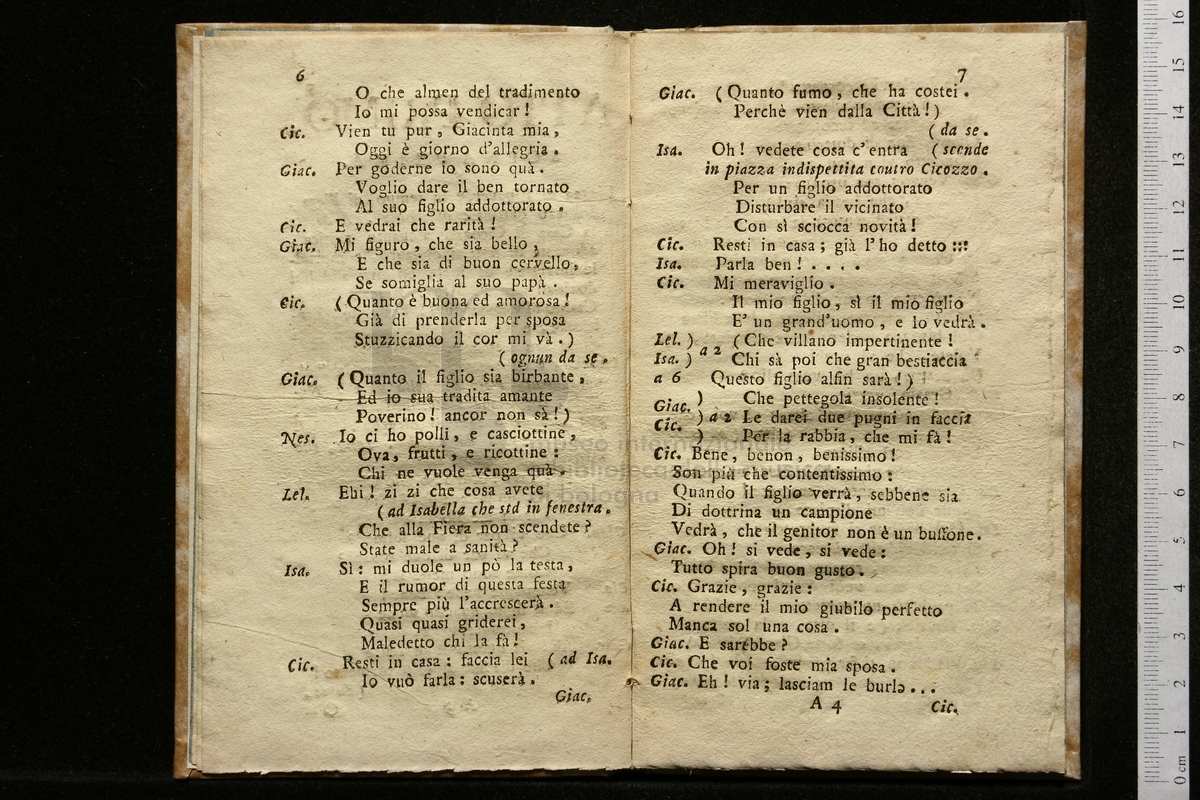 6
O che almen del tradimento
Io mi possa vendicar!
Cic. Vien tu pur, Giacinta mia,
Oggi è giorno d'allegria.
Giac. Per goderne io sono quà.
Voglio dare il ben tornato
Al suo figlio addottorato.
Cic. E vedrai che rarità!
Giac. Mi figuro, che sia bello,
E che sia di buon cervello,
Se somiglia al suo papà.
Cic. (Quanto è buona ed amorosa!
Già di prenderla per sposa
Stuzzicando il cor mi và.)
(ognun da se.
Giac. (Quanto il figlio sia birbante,
Ed io sua tradita amante
Poverino! ancor non sà!)
Nes. Io ci ho polli, e casciottine,
Ova, frutti, e ricottine:
Chi ne vuole venga quà.
Lel. Ehi! zi zi che cosa avete
(ad Isabella che stà in fenestra.
Che alla Fiera non scendete?
State male a sanità?
Isa. Sì: mi duole un pò la testa,
E il rumor di questa festa
Sempre più l'accrescerà.
Quasi quasi griderei,
Maledetto chi la fà!
Cic. Resti in casa: faccia lei (ad Isa.
Io vuò farla: scuserà.
Giac.
7
Giac. (Quanto fumo, che ha costei.
Perchè vien dalla Città!)
(da se.
Isa. Oh! vedete cosa c'entra (scende
in piazza indispettita contro Cicozzo.
Per un figlio addottorato
Disturbare il vicinato
Con sì sciocca novità!
Cic. Resti in casa; già l'ho detto :::
Isa. Parla ben! . . . .
Cic. Mi meraviglio.
Il mio figlio, sì il mio figlio
E' un grand'uomo, e lo vedrà.
Lel. ) a 2 (Che villano impertinente!
Isa. ) Chi sà poi che gran bestiaccia
a 6 Questo figlio alfin sarà!)
Giac. ) Che pettegola insolente!
Cic. ) a 2 Le darei due pugni in faccia
) Per la rabbia, che mi fà!
Cic. Bene, benon, benissimo!
Son più che contentissimo:
Quando il figlio verrà, sebbene sia
Di dottrina un campione
Vedrà, che il genitor non è un buffone.
Giac. Oh! si vede, si vede:
Tutto spira buon gusto.
Cic. Grazie, grazie:
A rendere il mio giubilo perfetto
Manca sol una cosa.
Giac. E sarebbe?
Cic. Che voi foste mia sposa.
Giac. Eh! via; lasciam le burle...
A 4 Cic.
0 cm 1 2 3 4 5 6 7 8 9 10 11 12 13 14 15 16